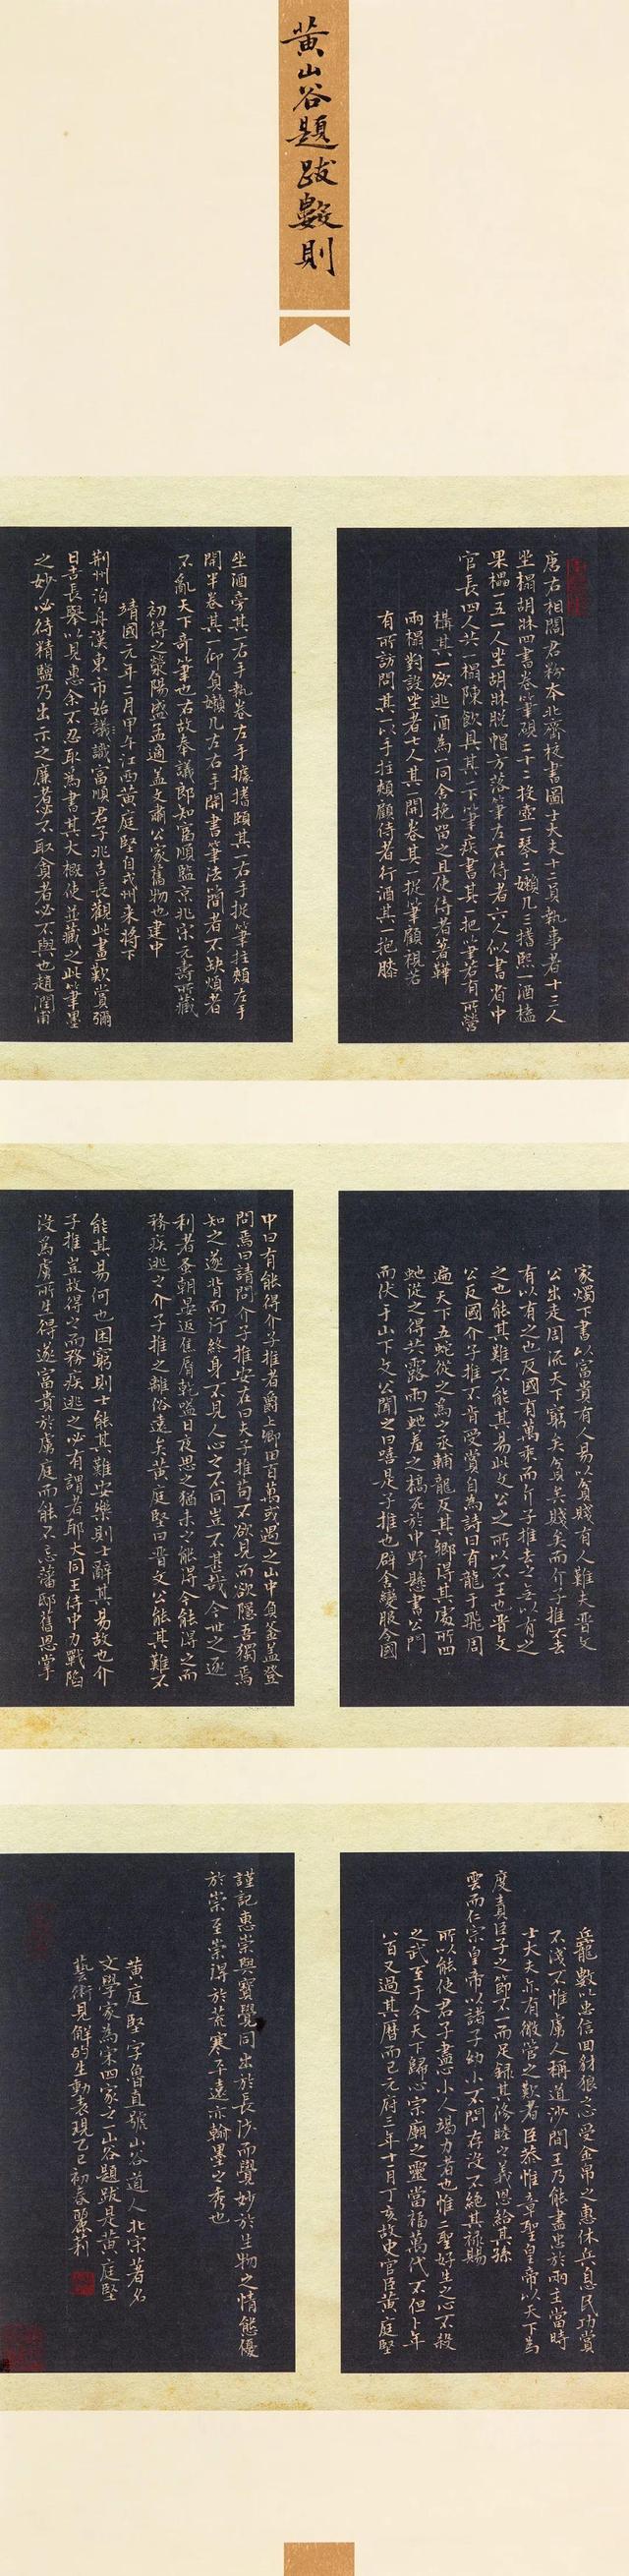 黄山谷題跋數則
唐右相閻君粉本北齊挍書圖士大夫十二員執事者十三人
坐榻胡牀四書卷筆硯二十二投壺一琴二嬾几三搘熙一酒榼
果櫑一五一人坐胡牀脱帽方落筆左右侍者六人似書省中
官長四人共一榻陳飲具其一下筆疾書其一把筆若有所營
構其一欲逃酒為一同舍挽留之且使侍者著鞾
兩榻對設坐者七人其一開卷其一捉筆顧視若
有所訪問其一以手拄頰顧侍者行酒其一把膝
坐酒旁其一右手執卷左手據搘頤其一右手捉筆拄頰左手
開半卷其一仰負嬾几左右手開書筆法簡者不缺煩者
不亂天下奇筆也右故奉議郎知富順監京兆宋元壽所藏
初得之滎陽盛孟適蓋文肅公家舊物也建中
靖國元年二月甲午江西黄庭堅自戎州來將下
荆州泊舟漢東市始議識富順君子兆吉長觀此畫歎賞彌
日吉長琴以見惠余不忍取為書其大概使並藏之此筆墨
之妙必待精鹽乃出示之廉者必不取貪者必不與也趙潤甫
家燭下書以富貴有人易以貧賤有人難夫晋文
公出走周流天下窮矣貧矣賤矣而介子推不去
有以有之也反國有萬乘而介子推去之無以有之
之也能其難不能其易此文公之所以不王也晋文
公反國介子推不肯受賞自為詩曰有龍于飛周
遍天下五蛇從之為之丞輔龍反其鄉得其處所四
蛇從之得其露雨一蛇羞之橋死於中野懸書公門
而伏于山下文公聞之曰嘻是子推也辟舍變服令國
中曰有能得介子推者爵上卿田百萬或遇之山中負釜蓋登
問焉曰請問介子推安在曰夫子推苟不欲見而欲隱吾獨焉
知之遂背而行終身不見人心之不同豈不甚哉今世之逐
利者蚤朝晏返焦唇乾嗌日夜思之猶未之能得今能得之而
務疾逃之介子推之離俗遠矣黄庭堅曰晋文公能其難不
能其易何也困窮則士能其難安樂則士辭其易故也介
子推豈故得之而務疾逃之必有謂者耶大同王侍中力戰陷
没為虜所生得遂富貴於虜庭而能不忘藩邸舊恩掌
兵龍數以忠信回豺狼之心受金帛之惠休兵息民功賞
不淺不惟虜人稱道沙間王乃能盡忠於兩主當時
士大夫亦有微管之歎者臣恭惟章聖皇帝以天下為
度責臣子之節不一而足録其修睦之義恩給其孫
雲而仁宗皇帝以諸子幼小不問存没不絕其禄賜
所以能使君子盡心小人竭力者也惟二聖好生之心不殺
之武至于今天下歸心宗廟之靈當福萬代不但卜年
八百又過其曆而已元符三年十月丁亥故史官臣黄庭堅
謹記惠崇與寶覺同出於長沙而覺妙於生物之情態優
於崇至崇得於荒寒平遠亦翰墨之秀也
黄庭堅字魯直號山谷道人北宋著名
文學家為宋四家之一山谷題跋是黄庭堅
藝術見解的生動表現乙巳初春麗莉